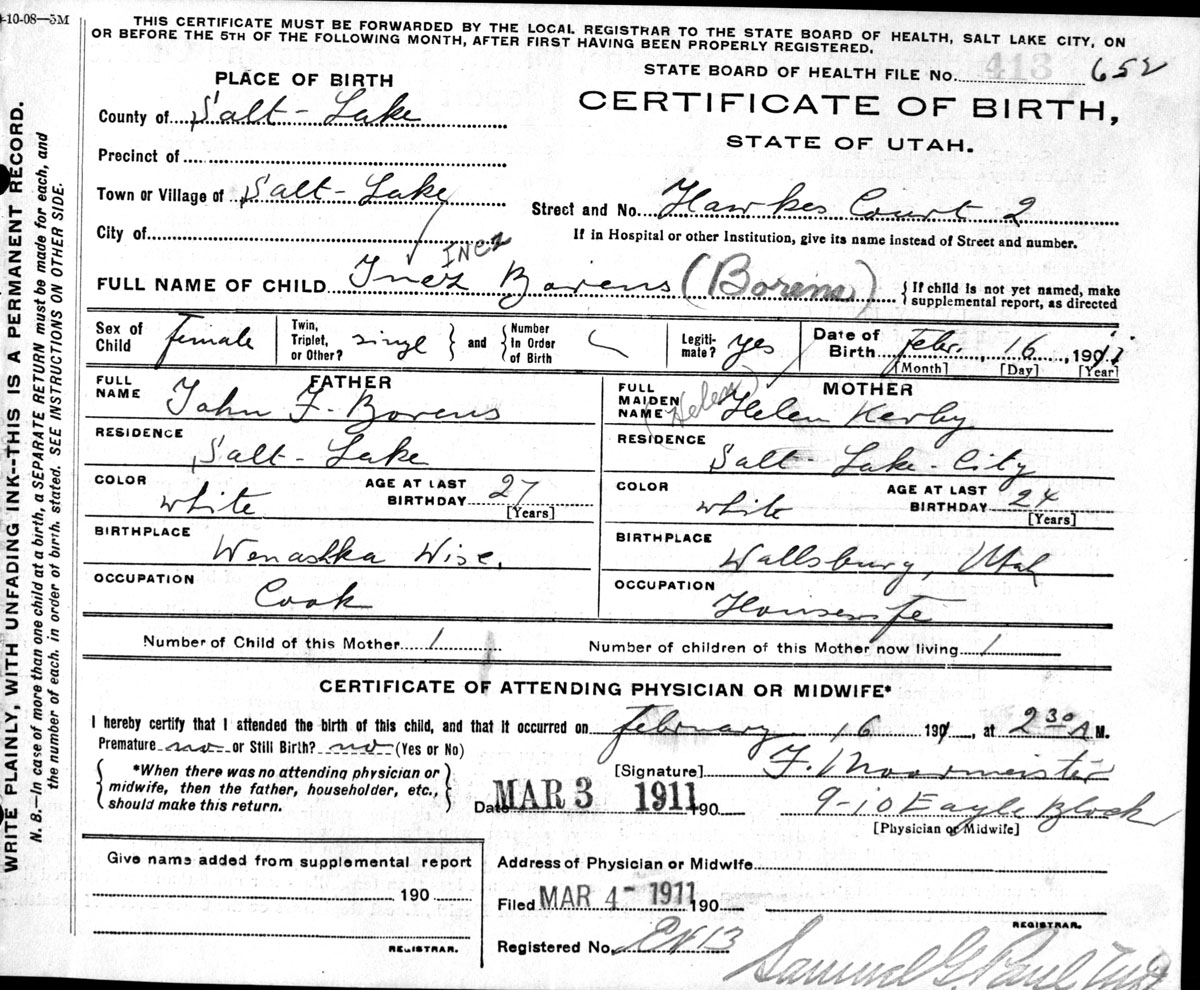 -10-08—5M
THIS CERTIFICATE MUST BE FORWARDED BY THE LOCAL REGISTRAR TO THE STATE BOARD OF HEALTH, SALT LAKE CITY, ON
OR BEFORE THE 5TH OF THE FOLLOWING MONTH, AFTER FIRST HAVING BEEN PROPERLY REGISTERED.
STATE BOARD OF HEALTH FILE No. 413 652
PLACE OF BIRTH
CERTIFICATE OF BIRTH,
STATE OF UTAH.
County of Salt-Lake
Precinct of
Town or Village of Salt-Lake
Street and No. Hawkes Court 2
City of
If in Hospital or other Institution, give its name instead of Street and number.
INEZ
FULL NAME OF CHILD Inez Borens (Borens) { If child is not yet named, make
supplemental report, as directed
Sex of Child female Twin, Triplet, or Other? singl } and { Number In Order of Birth Legiti- mate? yes Date of Birth Febr. 16, 1911
[Month] [Day] [Year]
FATHER
FULL NAME John F. Borens
RESIDENCE Salt-Lake
COLOR white AGE AT LAST BIRTHDAY 27 [Years]
BIRTHPLACE Wenashka Wisc.
OCCUPATION Cook
MOTHER
FULL MAIDEN NAME (Helen) Helen Kerby
RESIDENCE Salt-Lake-City
COLOR white AGE AT LAST BIRTHDAY 24 [Years]
BIRTHPLACE Wallsburg, Utah
OCCUPATION Housewife
Number of Child of this Mother 1 Number of children of this Mother now living 1
CERTIFICATE OF ATTENDING PHYSICIAN OR MIDWIFE*
I hereby certify that I attended the birth of this child, and that it occurred on February 16 191, at 2 30 A M.
Premature no or Still Birth? no (Yes or No)
{ *When there was no attending physician or
midwife, then the father, householder, etc.,
should make this return. }
[Signature] F. Moormeister
Date MAR 3 1911 190 9-10 Eagle Block
[Physician or Midwife]
Give name added from supplemental report
190
REGISTRAR.
Address of Physician or Midwife
Filed MAR 4- 1911 190
REGISTRAR.
Registered No.
Samuel G. Paul
WRITE PLAINLY, WITH UNFADING INK--THIS IS A PERMANENT RECORD.
N. B.—In case of more than one child at a birth, a SEPARATE RETURN must be made for each, and
the number of each, in order of birth, stated. SEE INSTRUCTIONS ON OTHER SIDE.